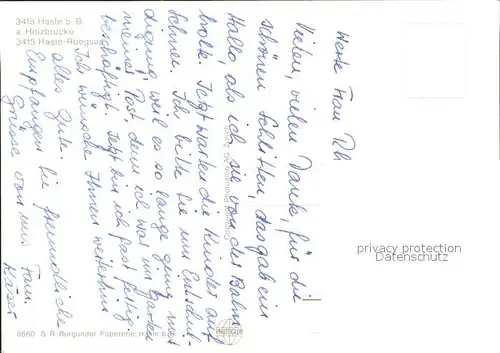 3415 Hasle b. B.
a Holzbrücke
3415 Hasle-Rüegsau
Werte Frau Rh
Vielen, vielen Dank, für die
schönen Schlitten, das gab ein
Hallo, als ich sie von der Bahn
holte. Jetzt warten die Kinder auf
Schnee. Ich bitte Sie um Entschul-
digung weil es so lange ging mit
meiner Post denn ich war im Garten
beschäftigt. Jetzt bin ich fast fertig.
Ich wünsche Ihnen weiterhin
alles Gute.
Empfangen Sie freundliche
Grüsse von uns Fam.
Käser
privacy protection
Datenschutz
5560 S. R. Burgunder, Papeterie, Hasle b.
PHOTOGLOB